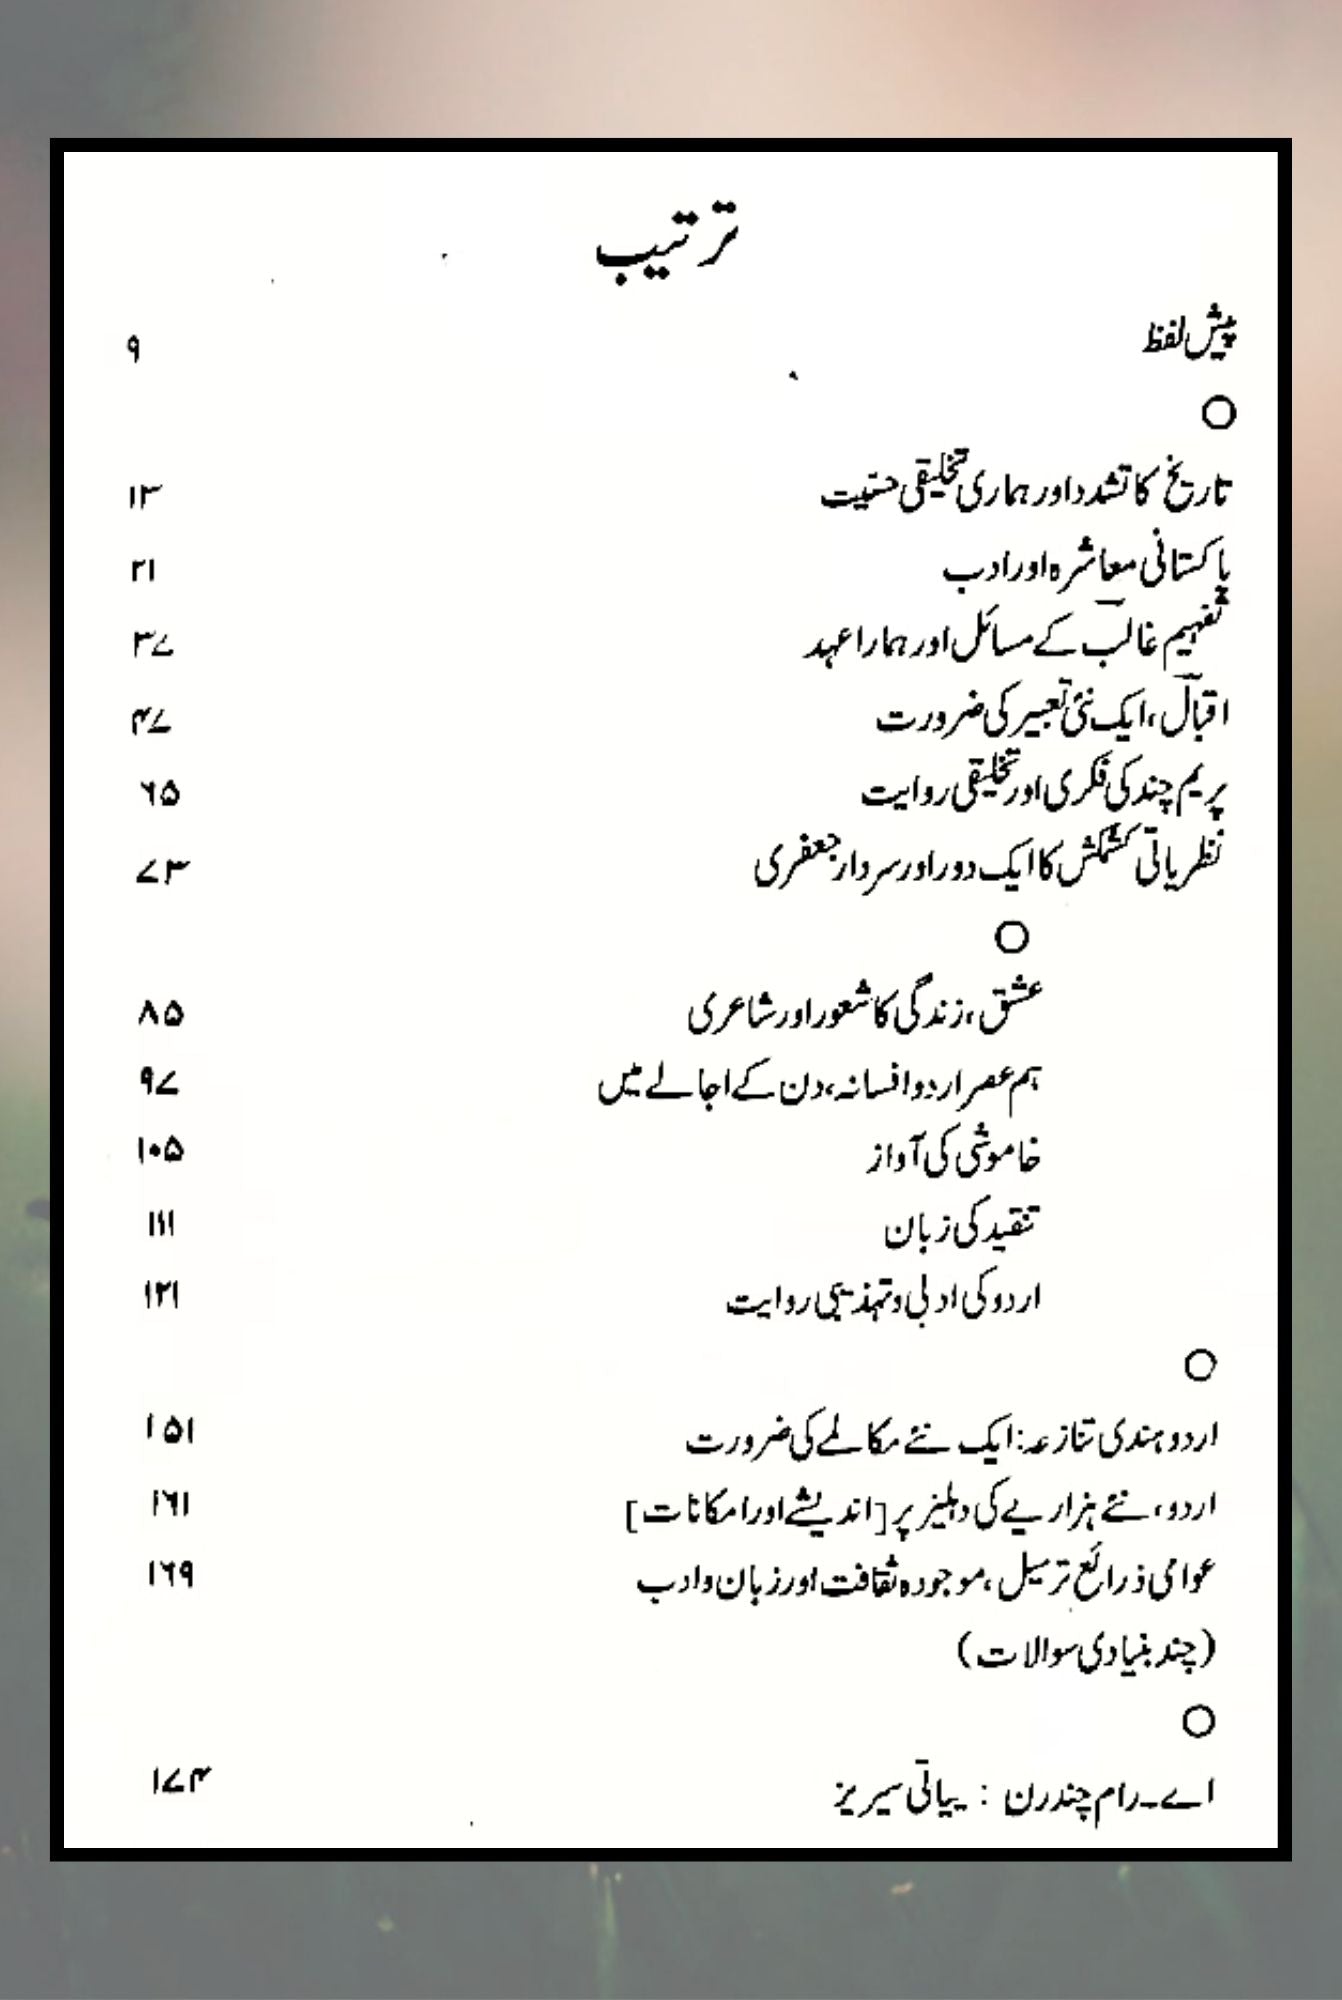 ترتیب
پیش لفظ ۹
تاریخ کا تشدد اور ہماری تخلیقی حسّیت ۱۳
پاکستانی معاشرہ اور ادب ۲۱
تفہیم غالبؔ کے مسائل اور ہمارا عہد ۳۷
اقبالؔ، ایک نئی تعبیر کی ضرورت ۴۷
پریم چند کی فکری اور تخلیقی روایت ۶۵
نظریاتی کشمکش کا ایک دور اور سردار جعفری ۷۳
عشق، زندگی کا شعور اور شاعری ۸۵
ہم عصر اردو افسانہ، دن کے اجالے میں ۹۷
خاموشی کی آواز ۱۰۵
تنقید کی زبان ۱۱۱
اردو کی ادبی و تہذیبی روایت ۱۲۱
اردو ہندی تنازعہ: ایک نئے مکالمے کی ضرورت ۱۵۱
اردو، نئے ہزاریے کی دہلیز پر [اندیشے اور امکانات] ۱۶۱
عوامی ذرائع ترسیل، موجودہ ثقافت اور زبان و ادب ۱۶۹
(چند بنیادی سوالات)
اے۔رام چندرن : ییاتی سیریز ۱۷۴